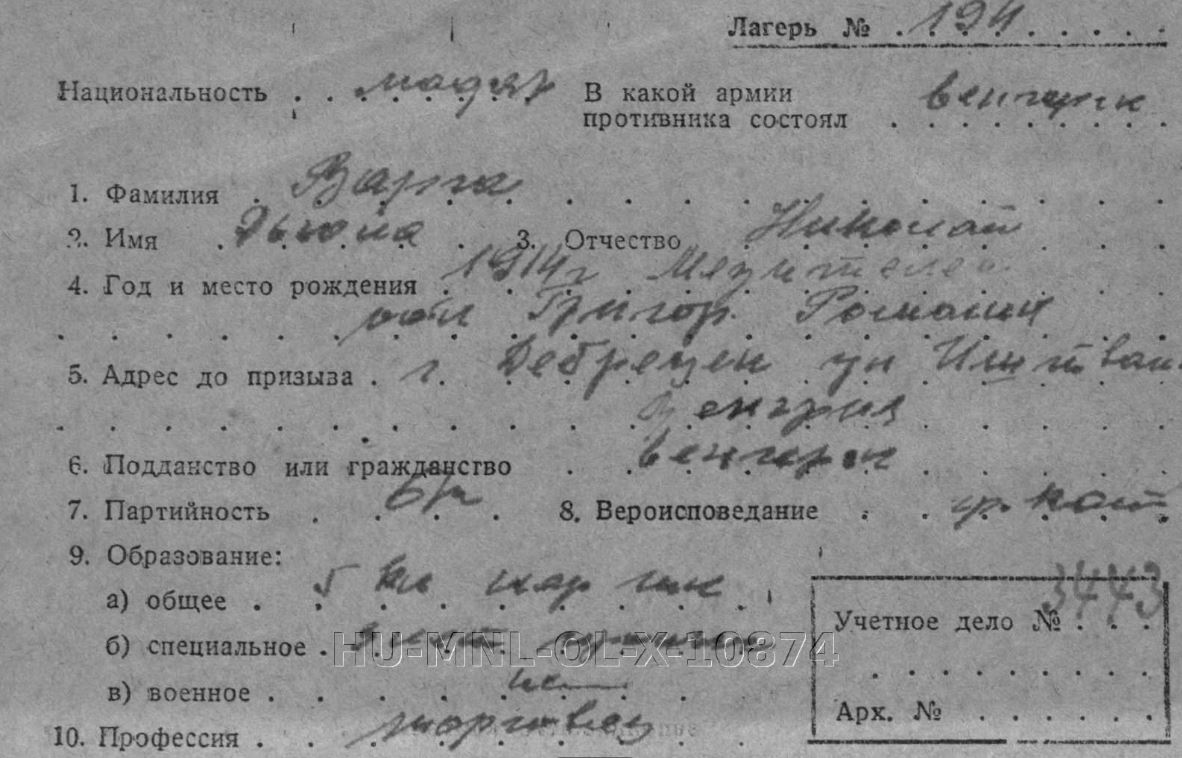 Лагерь № 194
Национальность мадяр В какой армии
противника состоял венгерск
1. Фамилия Варга
2. Имя Дьюла 3. Отчество Николай
4. Год и место рождения 1914 г
обл Григор. Романия
5. Адрес до призыва г. Дебрецен ул Иштван
Венгрия
6. Подданство или гражданство венгерск
7. Партийность б/п 8. Вероисповедание гр. кат
9. Образование:
а) общее 5 кл нар шк
б) специальное
в) военное нет
10. Профессия торговец
Учетное дело № 3443
Арх. №
HU-MNL-OL-X-10874